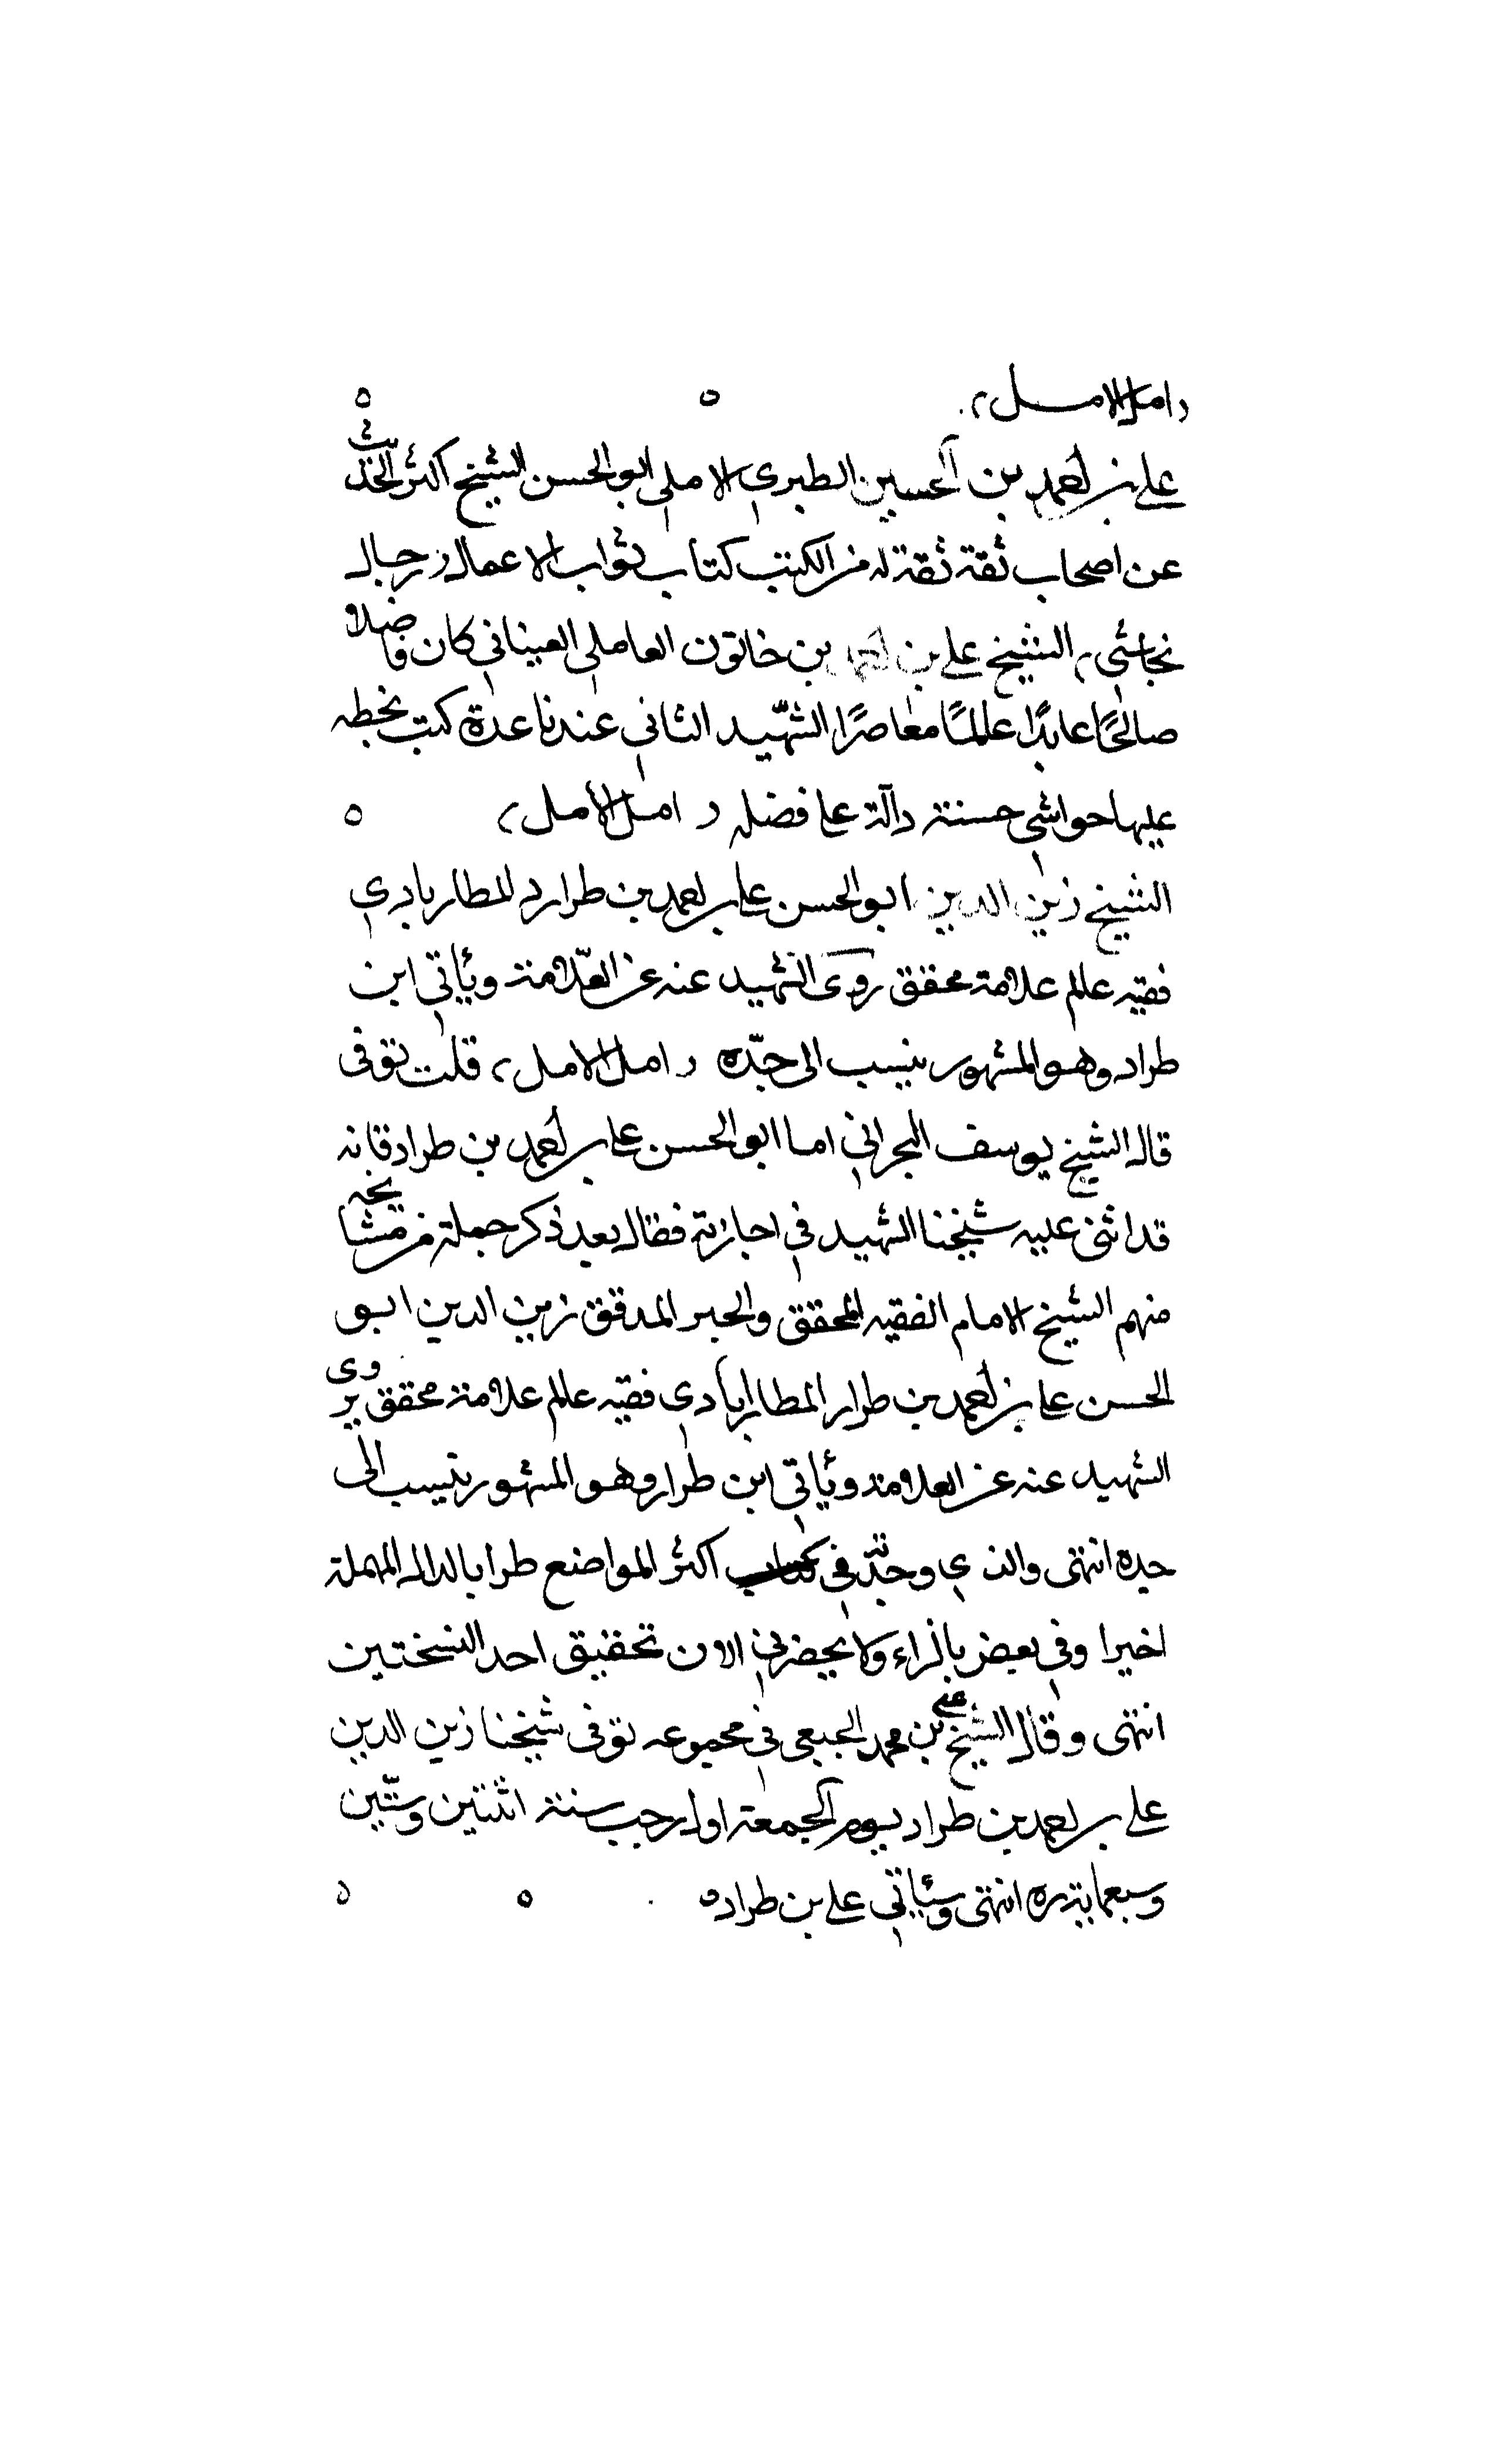 ( امل الامل )
علي بن احمد بن الحسين الطبري الاملي ابو الحسن الشيخ اكثر الحديث
عن اصحاب ثقة ثقة له من الكتب كتاب ثواب الاعمال ( رجال
نجاشي ) الشيخ علي بن احمد بن خاتون العاملي العيناني كان فاضلا
صالحًا عابدًا عالمًا معاصرًا الشهّيد الثاني عندنا عدة كتب بخطه
عليها حواشي حسنة دالة على فضله ( امل الأمل )
الشيخ زين الدين ابو الحسن علي بن احمد بن طراد المطار بادي
فقيه عالم علامة محقق روى الشهيد عنه عن العّلامة ويأتي ابن
طراد وهو المشهور ينسب الى جدّه ( امل الامل ) قلت توفى
قال الشيخ يوسف البحراني اما ابو الحسن علي بن احمد بن طراد فانه
قد اثنى عليه شيخنا الشهيد في اجازته فقال بعد ذكر جملة من مشايخه
منهم الشيخ الامام الفقيه المحقق والحبر المدقق زين الدين ابو
الحسن علي بن احمد بن طرار المطارابادي فقيه عالم علامة محقق يروى
الشهيد عنه عن العلامة ويأتي ابن طرار وهو المشهور ينسب الى
جده انتهى والذي وجدّته في اكثر المواضع طرا بالدال المهملة
اخيرا وفي بعض بالراء ولا يحضرني الان تحقيق احد النسختين
انتهى وقال الشيخ علي بن محمد الجبعي في مجموعه توفى شيخنا زين الدين
علي بن احمد بن طراد يوم الجمعة اول رجب سنة اثنتين وستّين
وسبعماية ره انتهى وسيأتي علي بن طراد